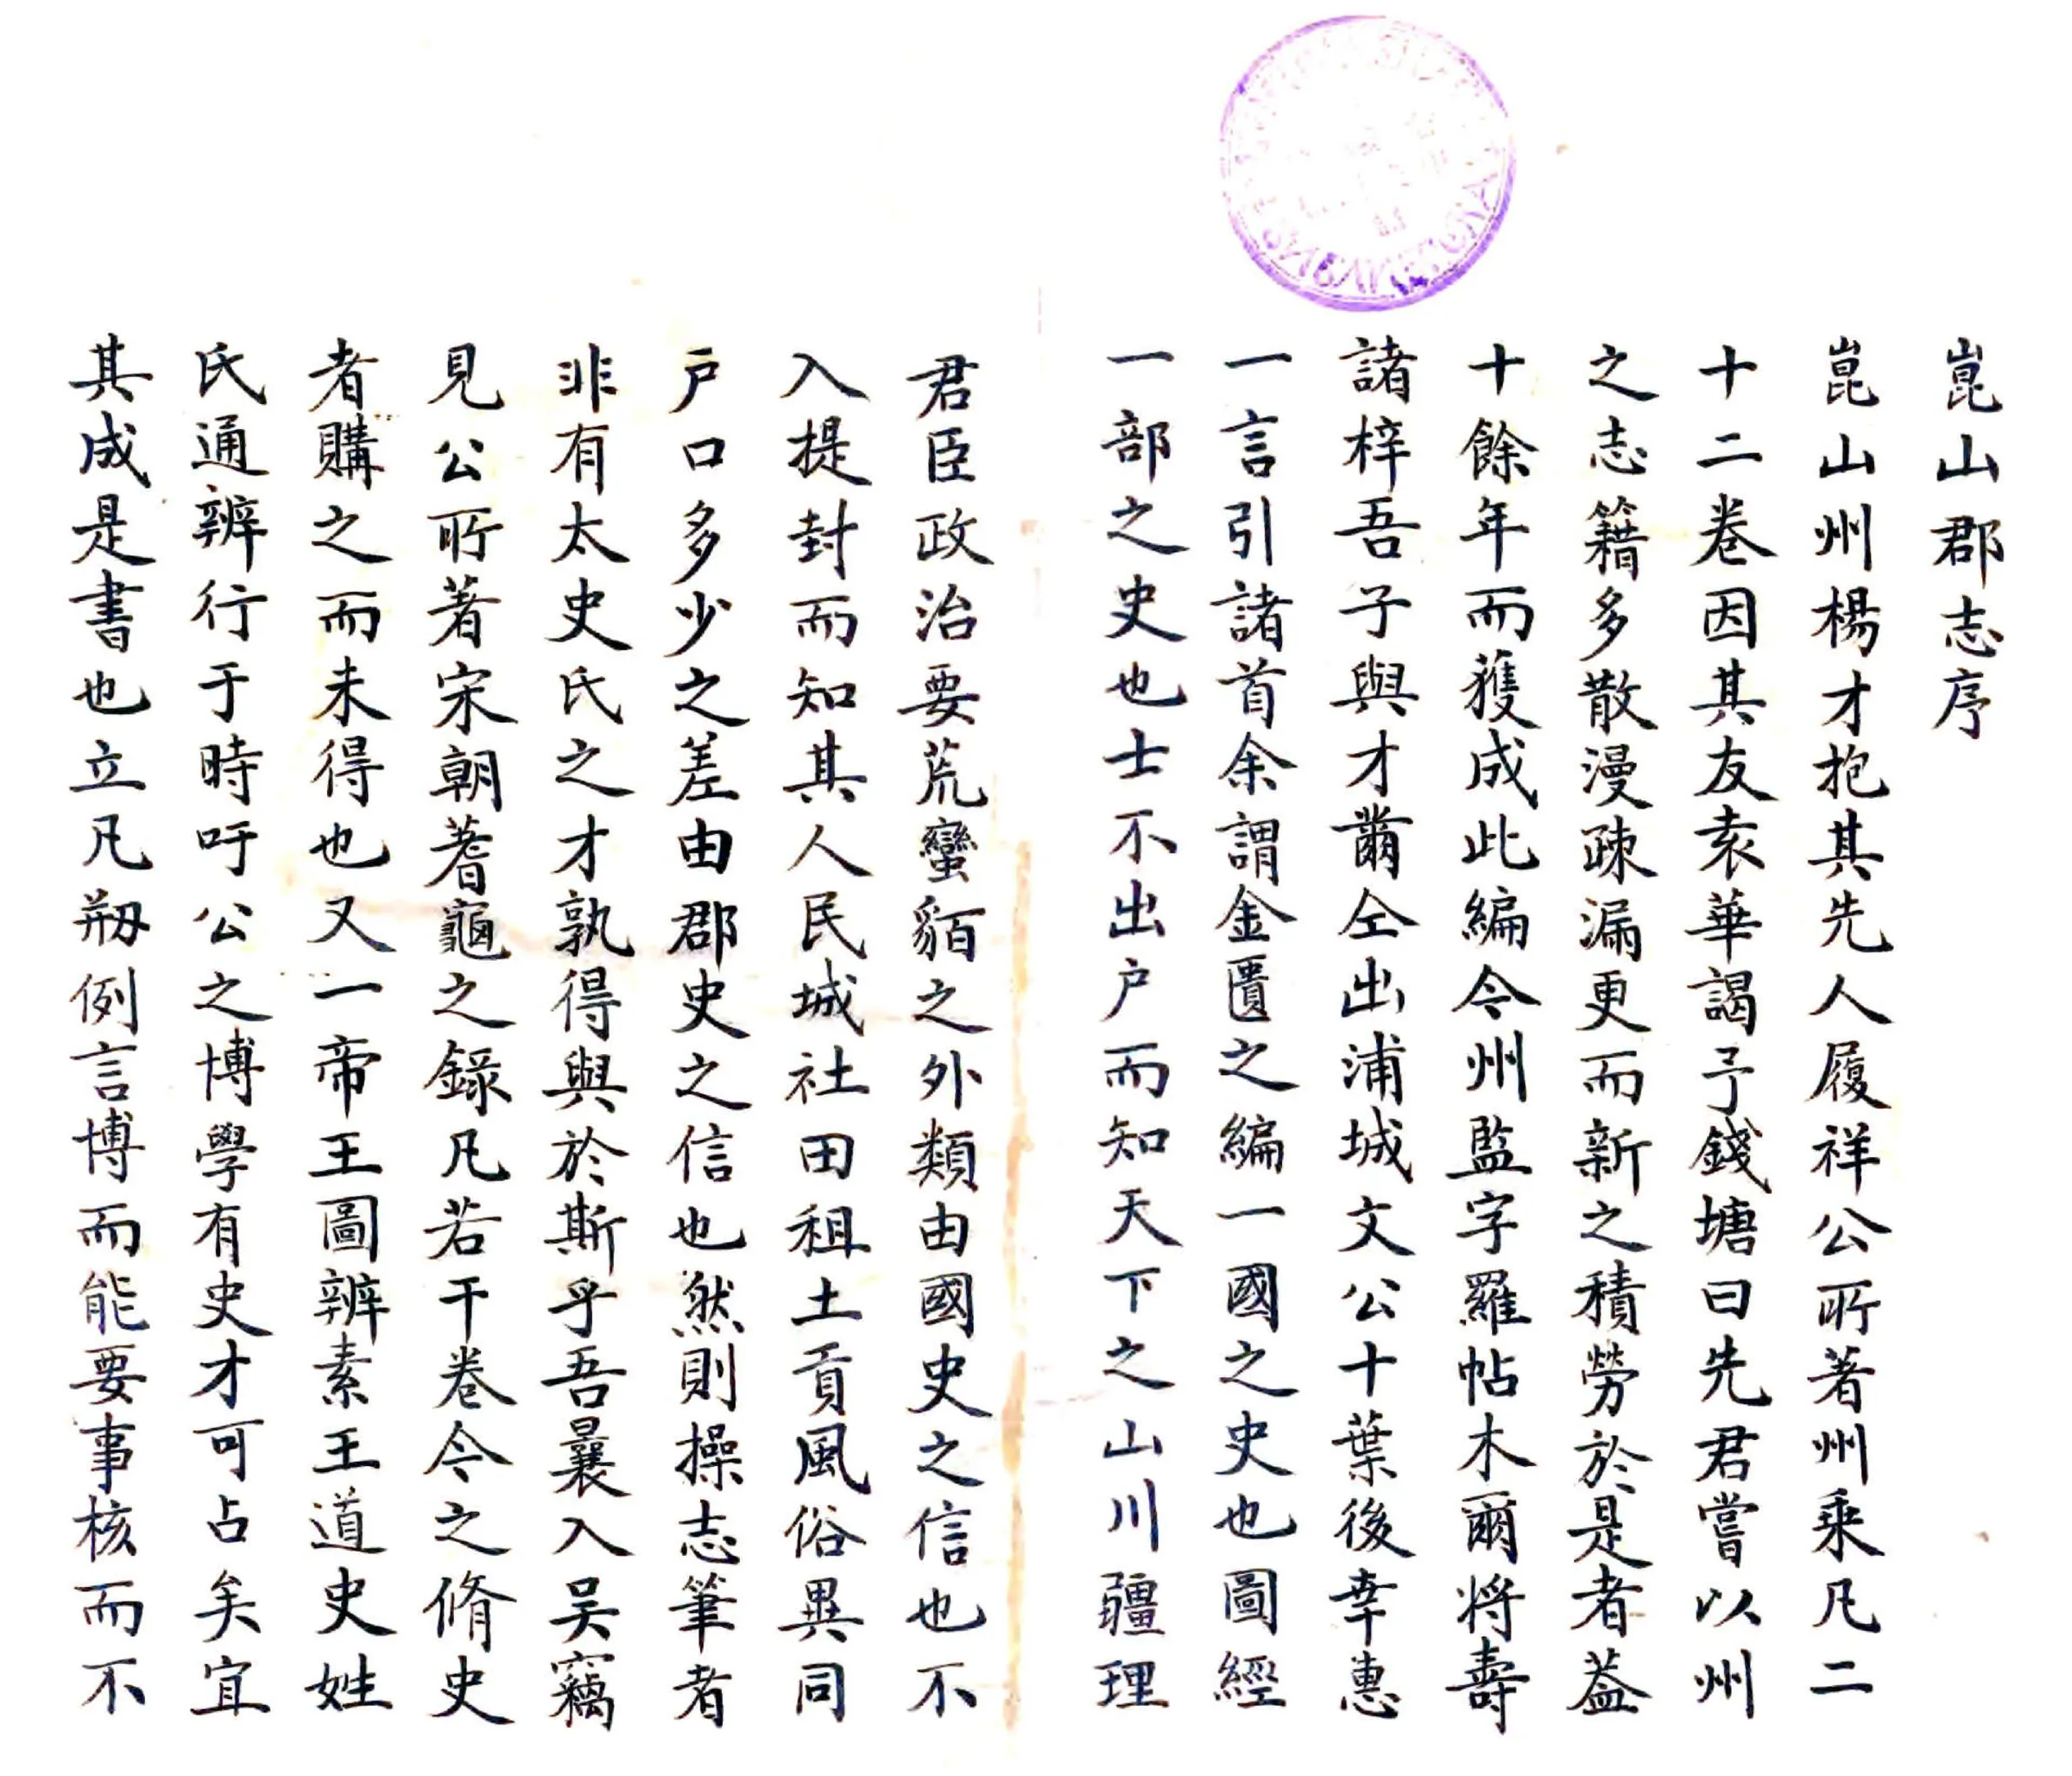 崑山郡志序
崑山州楊才抱其先人履祥公所著州乘凡二
十二卷因其友袁華謁予錢塘曰先君嘗以州
之志籍多散漫疎漏更而新之積勞於是者葢
十餘年而獲成此編今州監字羅帖木爾将壽
諸梓吾子與才蕾仝出浦城文公十葉後幸惠
一言引諸首余謂金匱之編一國之史也圖經
一部之史也士不出户而知天下之山川疆理
君臣政治要荒蠻貊之外類由國史之信也不
入提封而知其人民城社田租土貢風俗異同
户口多少之差由郡史之信也然則操志筆者
非有太史氏之才孰得與於斯乎吾曩入吴竊
見公所著宋朝蓍龜之錄凡若干卷今之脩史
者購之而未得也又一帝王圖辨素王道史姓
氏通辨行于時吁公之博學有史才可占矣宜
其成是書也立凡剏例言博而能要事核而不